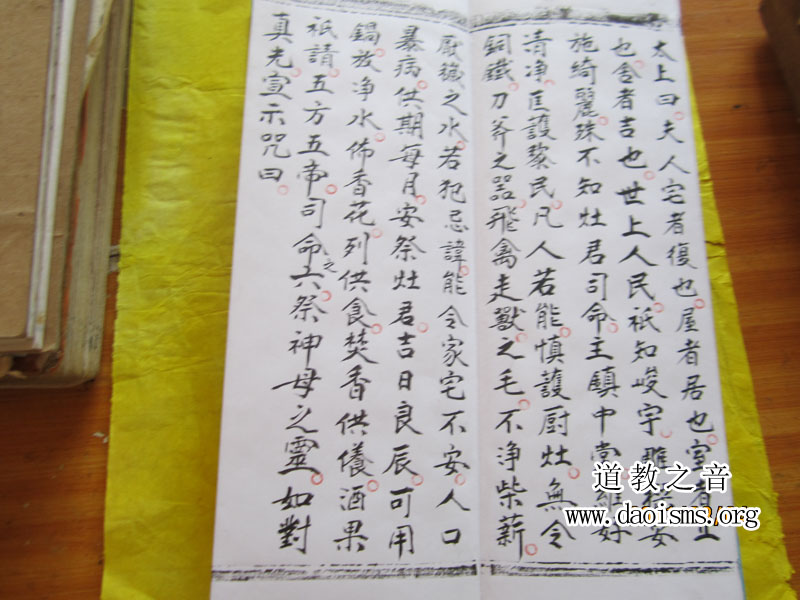 太上曰夫人宅者復也屋者居也室者
也舍者吉也世上人民祇知峻宇雕
施綺麗殊不知灶君司命主鎮中 好
清净匡護黎民凡人若能慎護厨灶無令
銅鐵刀斧之器飛禽走獸之毛不净柴薪
厭穢之水若犯忌諱能令家宅不安人口
暴病供期每月安祭灶君吉日良辰可用
鍋放净水佈香花列供食焚香供儀酒果
祇請五方五帝司命之六祭神母之靈如對
真光宣示咒曰
道教之音
www.daoisms.org